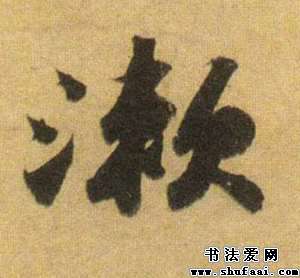 漱
书法爱网
www.shufaai.com